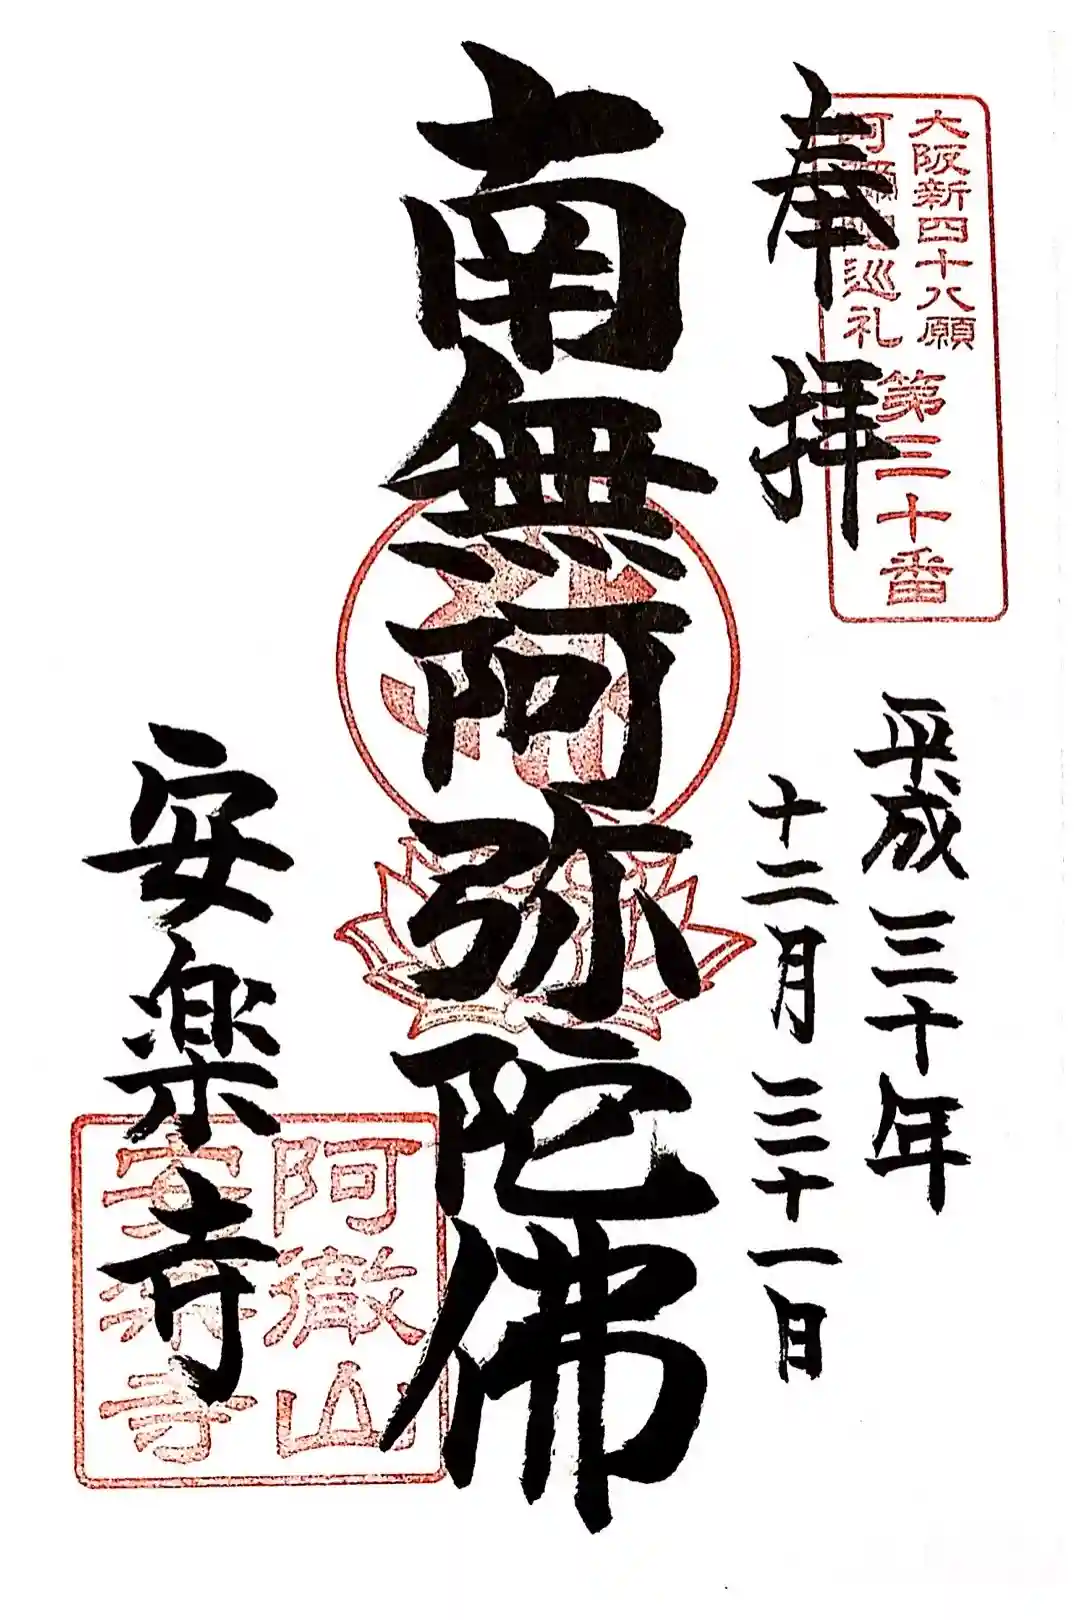 大阪新四十八願
阿彌陀巡礼
第三十番
奉拝
平成三十年
十二月三十一日
南無阿弥陀佛
安楽寺
阿徹山
安楽寺